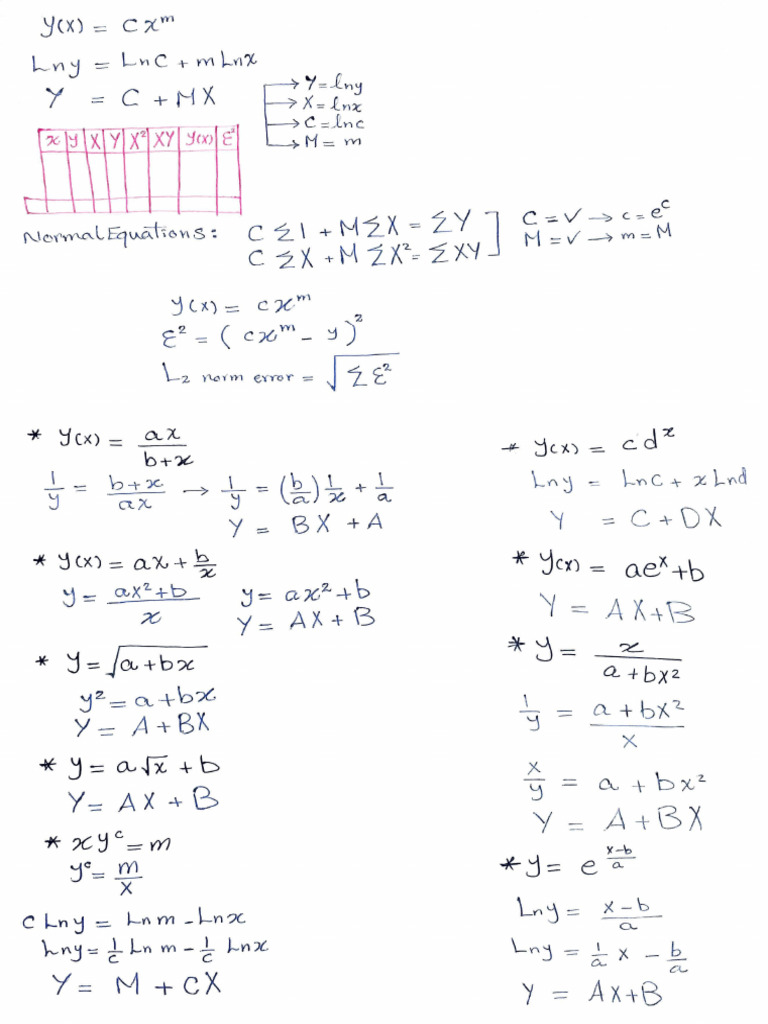 y(x) = c x^m
Ln y = Ln C + m Ln x
Y = C + M X
→ Y = ln y
→ X = ln x
→ C = ln c
→ M = m
x | y | X | Y | X² | XY | y(x) | ε²
Normal Equations: C Σ1 + M ΣX = ΣY
C ΣX + M ΣX² = ΣXY
C = ✓ → c = e^C
M = ✓ → m = M
y(x) = c x^m
ε² = ( c x^m - y )²
L₂ norm error = √(Σ ε²)
* y(x) = ax / (b+x)
1/y = (b+x)/(ax) → 1/y = (b/a) 1/x + 1/a
Y = BX + A
* y(x) = ax + b/x
y = (ax² + b)/x    y = ax² + b
Y = AX + B
* y = √(a+bx)
y² = a + bx
Y = A + BX
* y = a√x + b
Y = AX + B
* x y^c = m
y^c = m/x
c Ln y = Ln m - Ln x
Ln y = 1/c Ln m - 1/c Ln x
Y = M + CX
* y(x) = c d^x
Ln y = Ln c + x Ln d
Y = C + DX
* y(x) = ae^x + b
Y = AX + B
* y = x / (a + bx²)
1/y = (a + bx²)/x
x/y = a + bx²
Y = A + BX
* y = e^((x-b)/a)
Ln y = (x-b)/a
Ln y = 1/a x - b/a
Y = AX + B